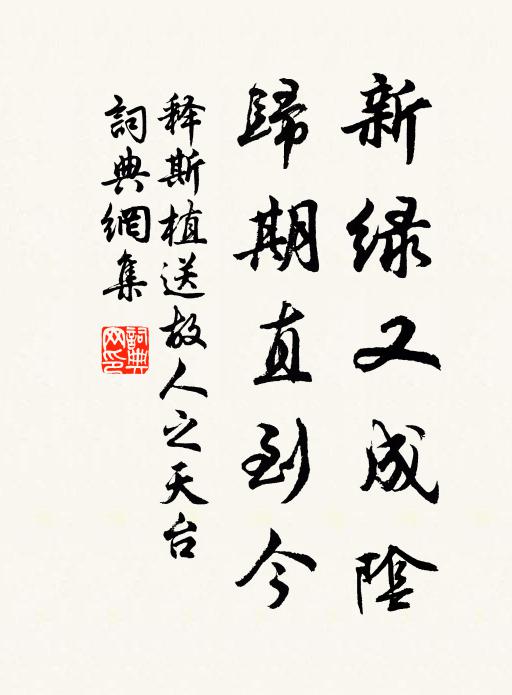 新绿又成陰
歸期直到今
释斯植送故人之天台
詞典網集
詞典网印